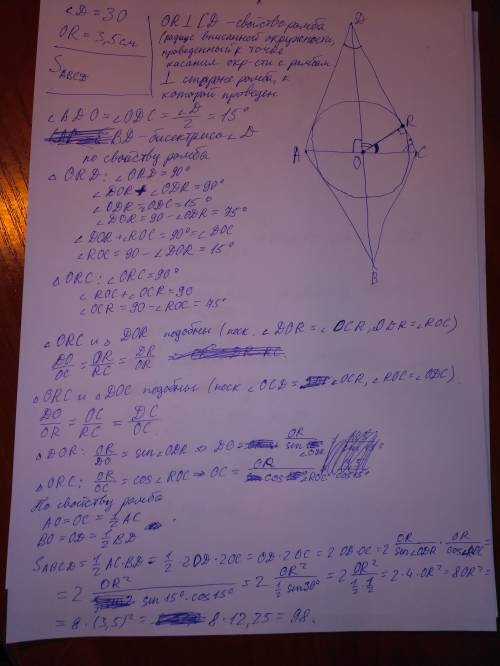 ∠D = 30
OR = 3,5 см
S_ABCD
OR ⊥ CD - свойство ромба
(радиус вписанной окружности,
проведенный к точке
касания окр-сти с ромбом
⊥ стороне ромба, к
которой проведен
∠ADO = ∠ODC = ∠D/2 = 15°
BD - биссектриса ∠D
по свойству ромба
△ ORD: ∠ORD = 90°
∠DOR + ∠ODR = 90°
∠ODR = ∠ODC = 15°
∠DOR = 90 - ∠ODR = 75°
∠DOR + ∠ROC = 90° = ∠DOC
∠ROC = 90 - ∠DOR = 15°
△ ORC: ∠ORC = 90°
∠ROC + ∠OCR = 90
∠OCR = 90 - ∠ROC = 75°
△ ORC и △ DOR подобны (поск. ∠DOR = ∠OCR, ∠ODR = ∠ROC)
DO/OC = OR/RC = DR/OR
△ ORC и △ DOC подобны (поск ∠OCD = ∠OCR, ∠ROC = ∠ODC).
DO/OR = OC/RC = DC/OC
△ DOR: OR/DO = sin∠ODR => DO = OR/sin∠ODR
△ ORC: OR/OC = cos∠ROC => OC = OR/cos∠ROC
По свойству ромба
AO = OC = 1/2 AC
BO = OD = 1/2 BD
S_ABCD = 1/2 AC·BD = 1/2 · 2OD · 2OC = OD · 2OC = 2 OD·OC = 2 OR/sin∠ODR · OR/cos∠ROC =
= 2 OR²/sin15°·cos15° = 2 OR²/(1/2 sin30°) = 2 OR²/(1/2·1/2) = 2·4·OR² = 8OR² =
= 8·(3,5)² = 8·12,25 = 98.
D
R
A
O
C
B